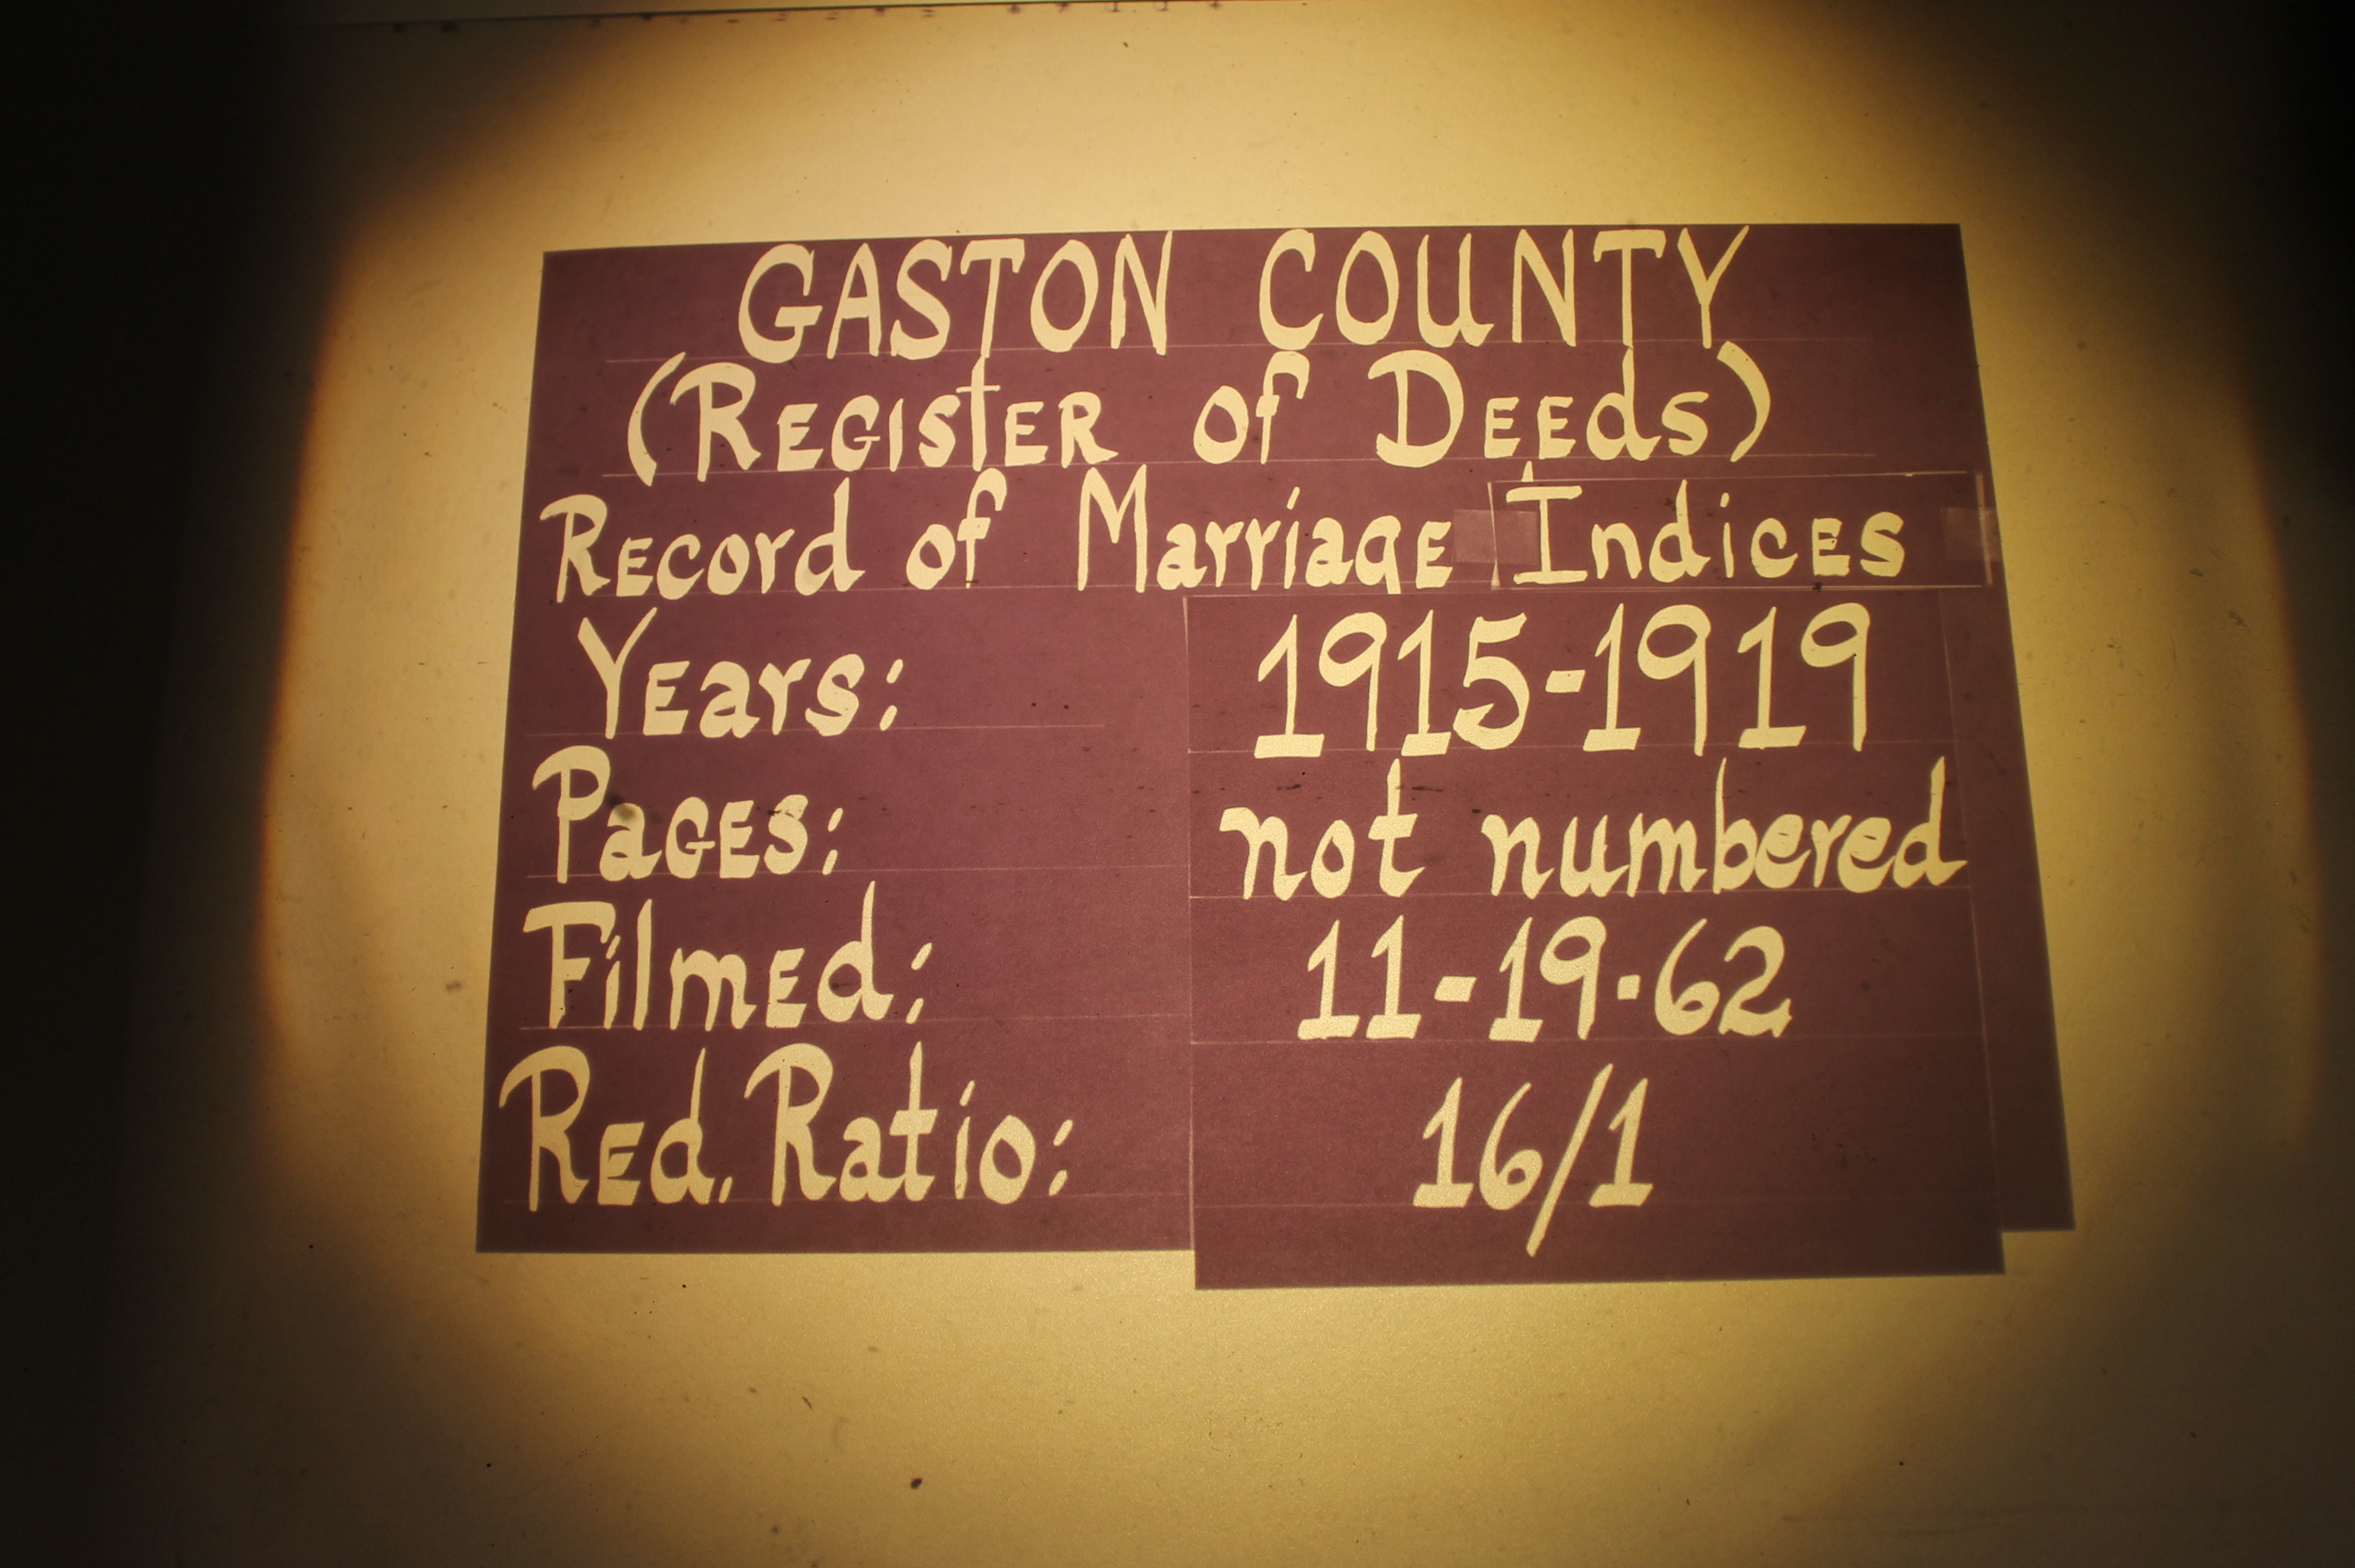 GASTON COUNTY
(REGISTER of DEEds)
RECord of MarriagE IndicES
YEars: 1915-1919
PaGES: not numbered
FilmEd: 11-19-62
REd. Ratio: 16/1